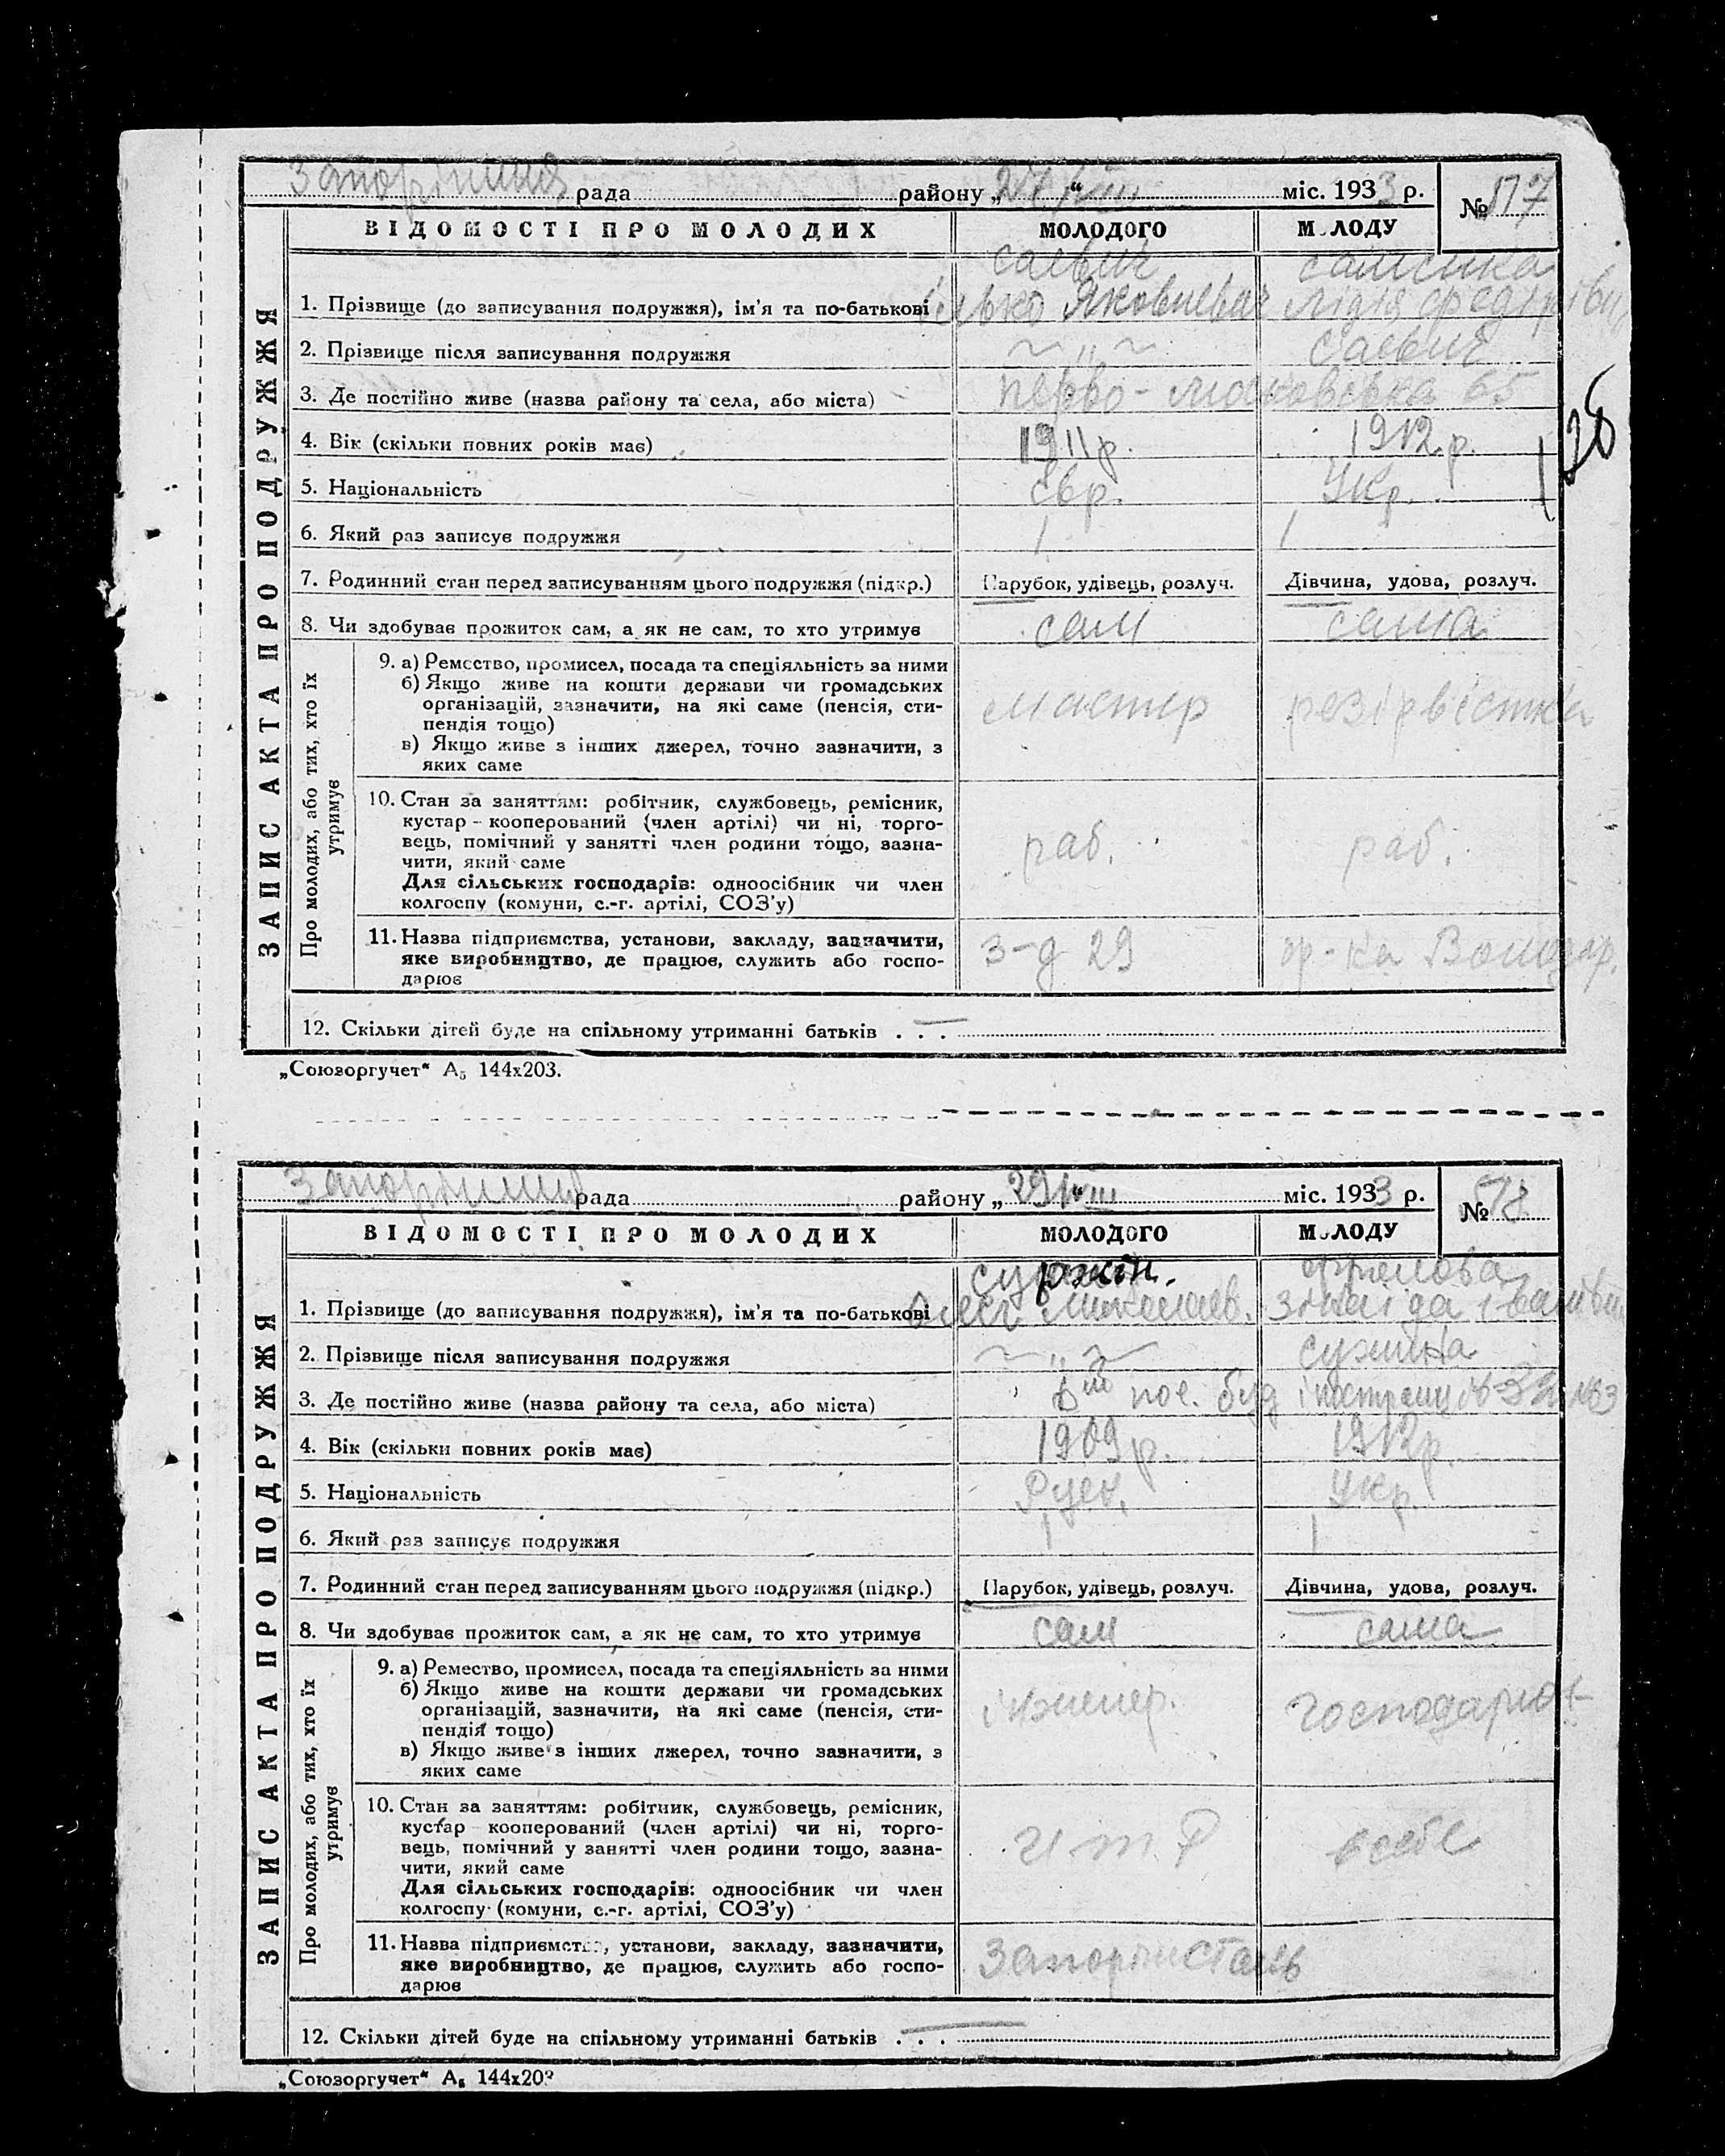 рада району „29 VIII міс. 1933 р. № 517
ВІДОМОСТІ ПРО МОЛОДИХ МОЛОДОГО МОЛОДУ
Саєвич
1. Прізвище (до записування подружжя), ім'я та по-батькові Яковлевич Лідія
2. Прізвище після записування подружжя ~ „ ~ Саєвич
3. Де постійно живе (назва району та села, або міста) 65
4. Вік (скільки повних років має) 1911 р. 1912 р.
5. Національність Євр. Укр.
6. Який раз записує подружжя 1 1
7. Родинний стан перед записуванням цього подружжя (підкр.) Парубок, удівець, розлуч. Дівчина, удова, розлуч.
8. Чи здобуває прожиток сам, а як не сам, то хто утримує сам сама
9. а) Ремество, промисел, посада та спеціяльність за ними
б) Якщо живе на кошти держави чи громадських
організацій, зазначити, на які саме (пенсія, сти-
пендія тощо)
мастер
в) Якщо живе з інших джерел, точно зазначити, з
яких саме
10. Стан за заняттям: робітник, службовець, ремісник,
кустар - кооперований (член артілі) чи ні, торго-
вець, помічний у занятті член родини тощо, зазна-
чити, який саме
раб. раб.
Для сільських господарів: одноосібник чи член
колгоспу (комуни, с.-г. артілі, СОЗ'у)
11. Назва підприємства, установи, закладу, зазначити,
яке виробництво, де працює, служить або госпо-
дарює
з-д 29 ф-ка
12. Скільки дітей буде на спільному утриманні батьків . . . —
ЗАПИС АКТА ПРО ПОДРУЖЖЯ
Про молодих, або тих, хто їх
утримує
„Союзоргучет“ А5 144х203.
рада району „29 VIII міс. 1933 р. № 518
ВІДОМОСТІ ПРО МОЛОДИХ МОЛОДОГО МОЛОДУ
Фролова
1. Прізвище (до записування подружжя), ім'я та по-батькові Зінаіда
2. Прізвище після записування подружжя ~ „ ~
3. Де постійно живе (назва району та села, або міста) 6ий пос.
4. Вік (скільки повних років має) 1909 р. 1912 р.
5. Національність Укр.
6. Який раз записує подружжя 1 1
7. Родинний стан перед записуванням цього подружжя (підкр.) Парубок, удівець, розлуч. Дівчина, удова, розлуч.
8. Чи здобуває прожиток сам, а як не сам, то хто утримує сам сама
9. а) Ремество, промисел, посада та спеціяльність за ними
б) Якщо живе на кошти держави чи громадських
організацій, зазначити, на які саме (пенсія, сти-
пендія тощо)
інженер.
в) Якщо живе з інших джерел, точно зазначити, з
яких саме
10. Стан за заняттям: робітник, службовець, ремісник,
кустар - кооперований (член артілі) чи ні, торго-
вець, помічний у занятті член родини тощо, зазна-
чити, який саме
И т. Р в себе
Для сільських господарів: одноосібник чи член
колгоспу (комуни, с.-г. артілі, СОЗ'у)
11. Назва підприємства, установи, закладу, зазначити,
яке виробництво, де працює, служить або госпо-
дарює
Запоріжсталь
12. Скільки дітей буде на спільному утриманні батьків . . . —
ЗАПИС АКТА ПРО ПОДРУЖЖЯ
Про молодих, або тих, хто їх
утримує
„Союзоргучет“ А5 144х203